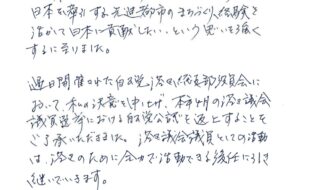 日本を牽引する先進都市のまちづくり経験を
活かして日本に貢献したい、という思いを強く
するに至りました。
週日開催された自民党港区総支部役員会に
おいて、私の決意を申し上げ、本年4月の港区議会
議員選挙における自民党公認を返上することを
ご了承いただきました。港区議会議員としての活動
は、港区のために全力で活動できる後任に引き
継いでいきます。